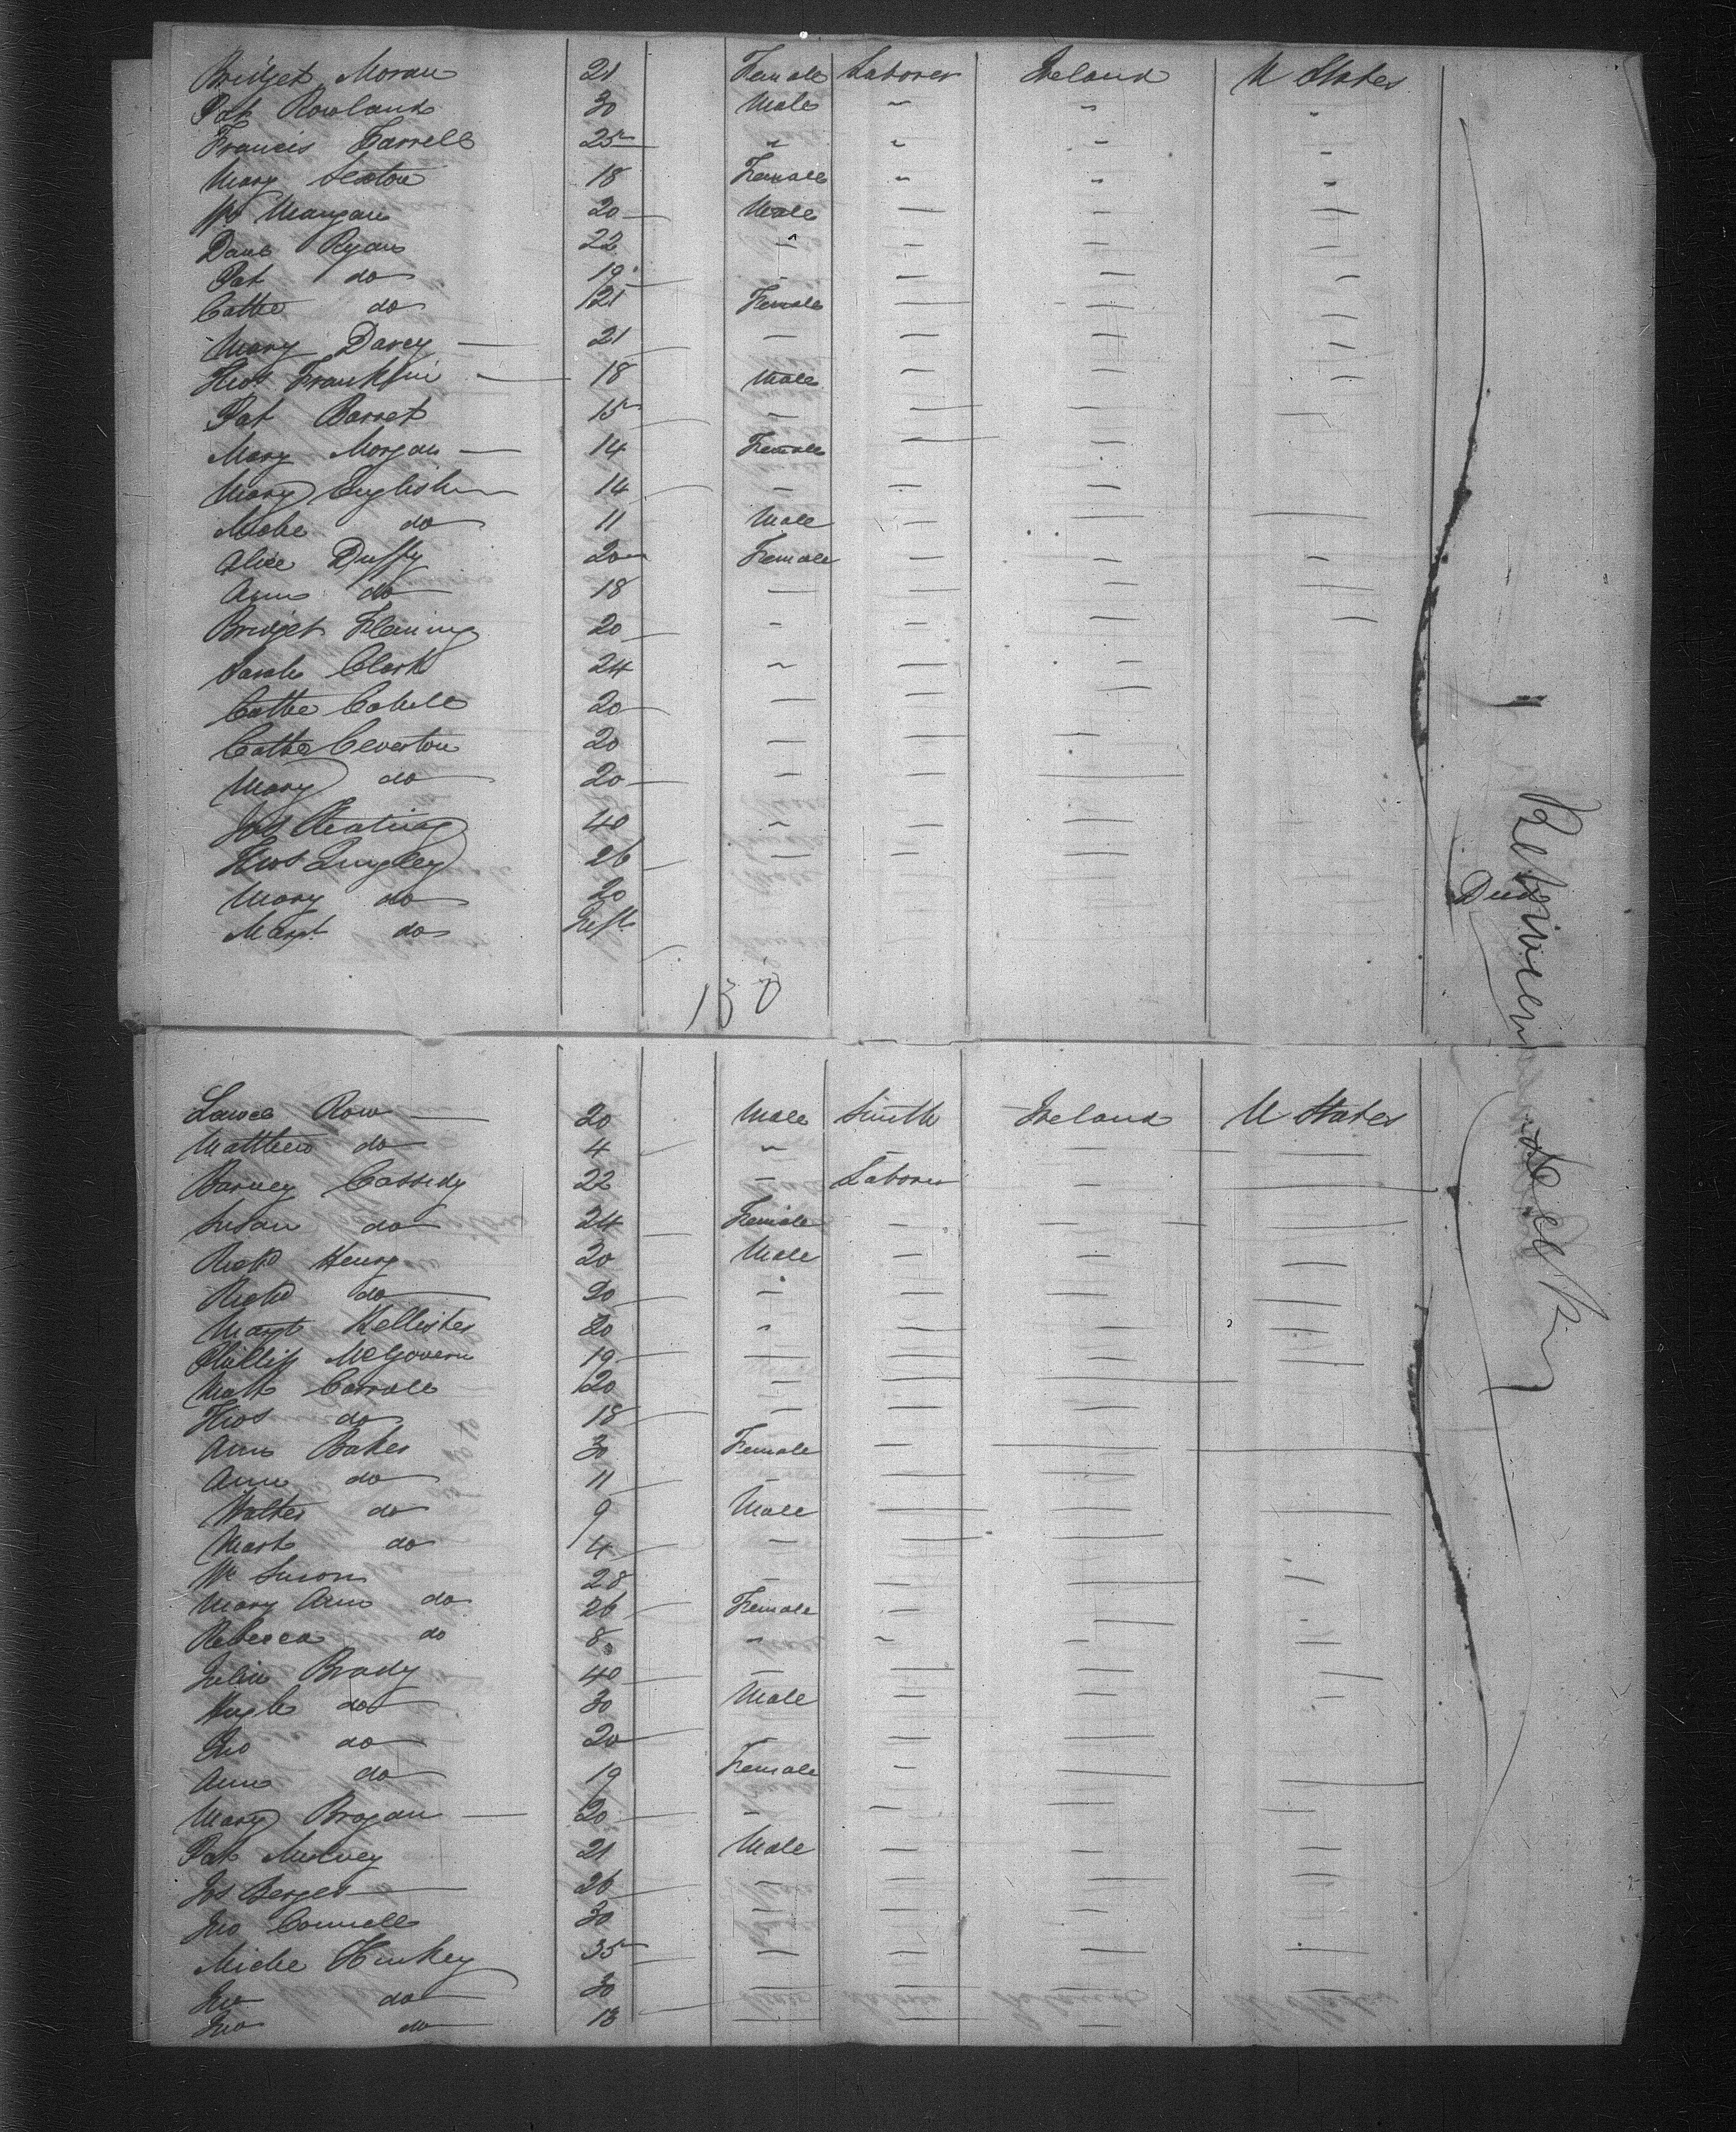 Bridget Moran 21 Female Laborer Ireland U States
Pat Rowland 30 Male " " "
Francis Farrell 25 " " " "
Mary Sexton 18 Female " " "
Wm Mangan 20 Male — — —
Danl Ryan 22 — — — —
Pat do 19 — — — —
Cathe do 21 Female — — —
Mary Darcy — 21 — — — —
Thos Franklin — 18 Male — — —
Pat Barret 15 — — — —
Mary Morgan — 14 Female — —
Mary English 14 — — —
Miche do 11 Male — — —
Alice Duffy 20 Female — — —
Ann do 18 — — — —
Bridget Fleming 20 — — — —
Sarah Clark 24 — — —
Cathe Cahill 20 — — —
Cathe Cleverton 20 — — —
Mary do 20 — — —
Jas Keating 40 — — —
Thos Quigley 26 — — —
Mary do 20
Margt do Inft Died
130
Lawce Row — 20 Male Smith Ireland U States
Matthew do 4 " — — —
Barney Cassidy 22 — Laborer — —
Susan do 24 Female — — —
Richd Henry 20 Male — — —
Richd do 20 — — — —
Margt Hellister 20 " — — —
Phillip McGovern 19 — — — —
Matt Carroll 20 — — —
Thos do 18 — — —
Ann Baker 30 Female — —
Ann do 11 — — —
Walter do 9 Male — — —
Mark do 4 — — —
Wm 28 — — — —
Mary Ann do 26 Female — —
Rebecca do 8 " " — —
Julia Brady 40 — — — —
Hugh do 30 Male — — —
Jno do 20 — — —
Ann do 19 Female — — —
Mary Brogan — 20 — — — —
Pat Mulvey 21 Male — — —
Jos Berger 26 — — — —
Jno Connell 30 — — — —
Miche Hinkey 35 — — — —
Jno do 30 — — —
Jno do 18 — — —